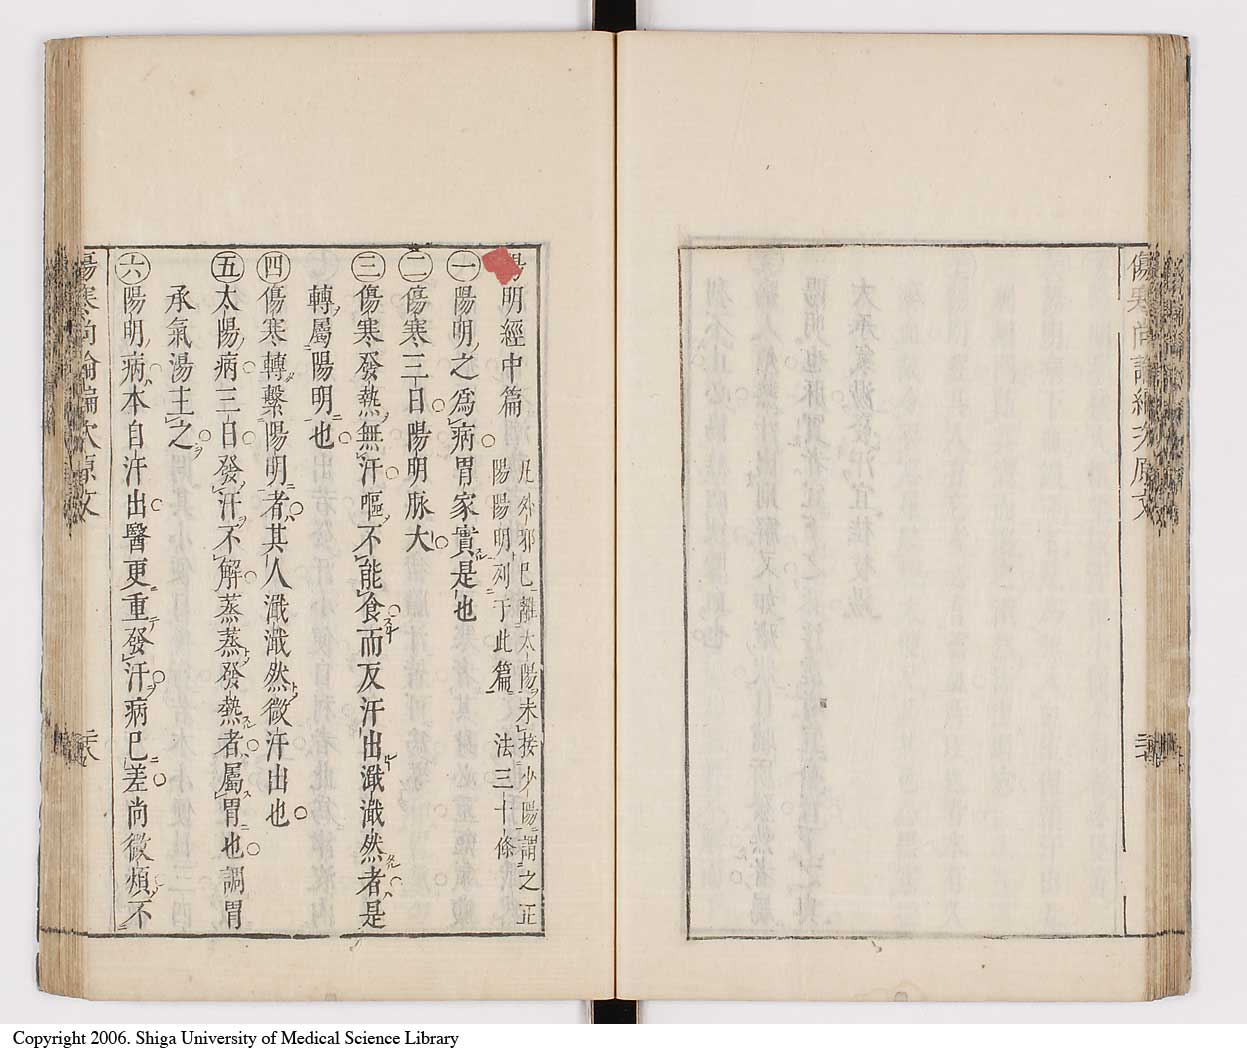 傷寒尚論編次原文
陽明經中篇
凡外邪已離太陽未接少陽謂之正
陽陽明列于此篇 法三十條
㊀陽明之爲病胃家實是也
㊁傷寒三日陽明脉大
㊂傷寒發熱無汗嘔不能食而反汗出濈濈然者是
轉屬陽明也
㊃傷寒轉繫陽明者其人濈濈然微汗出也
㊄太陽病三日發汗不解蒸蒸發熱者屬胃也調胃
承氣湯主之
㊅陽明病本自汗出醫更重發汗病已差尚微煩不
傷寒尚論編次原文
Copyright 2006. Shiga University of Medical Science Library